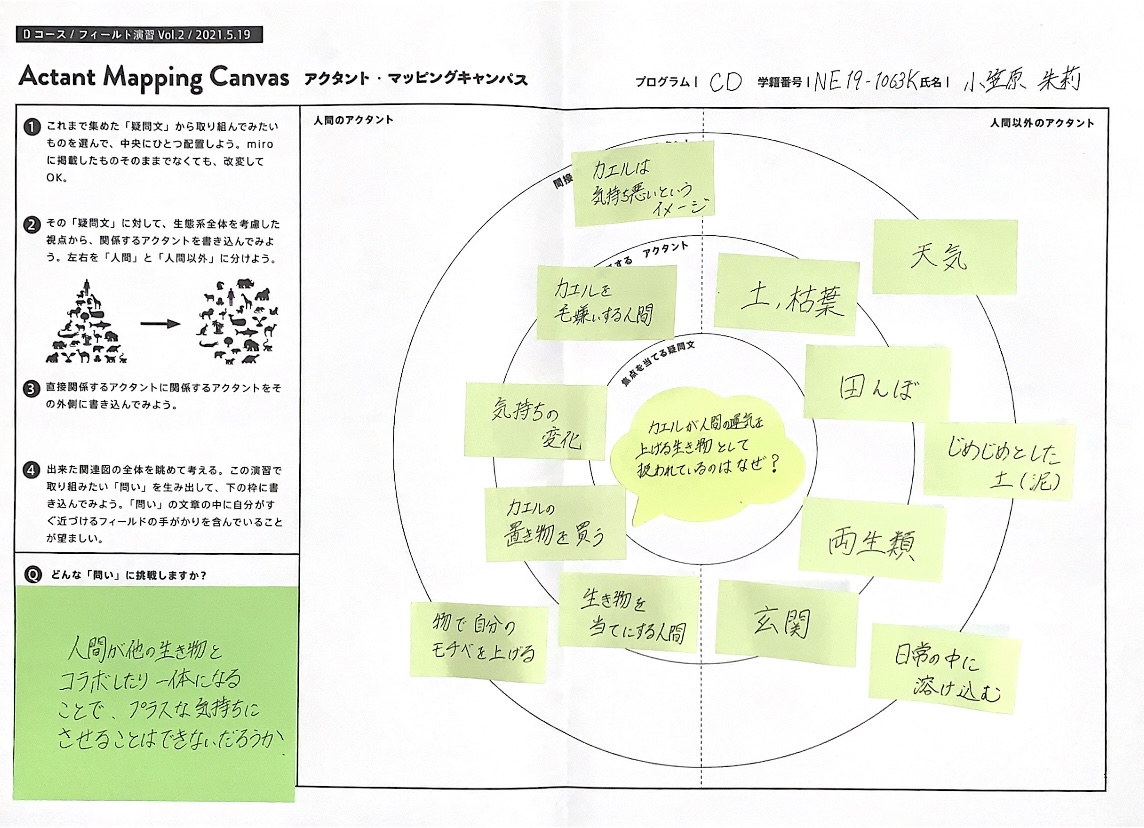 Dコース / フィールド演習 Vol.2 / 2021.5.19
Actant Mapping Canvas アクタント・マッピングキャンパス
プログラム| CD 学籍番号| NE19-1063K 氏名| 小笠原 朱莉
1 これまで集めた「疑問文」から取り組んでみたい
ものを選んで、中央にひとつ配置しよう。miro
に掲載したものそのままでなくても、改変して
OK。
2 その「疑問文」に対して、生態系全体を考慮した
視点から、関係するアクタントを書き込んでみよ
う。左右を「人間」と「人間以外」に分けよう。
3 直接関係するアクタントに関係するアクタントをそ
の外側に書き込んでみよう。
4 出来た関連図の全体を眺めて考える。この演習で
取り組みたい「問い」を生み出して、下の枠に書
き込んでみよう。「問い」の文章の中に自分がす
ぐ近づけるフィールドの手がかりを含んでいること
が望ましい。
Q どんな「問い」に挑戦しますか?
人間が他の生き物と
コラボしたり一体になる
ことで、プラスな気持ちに
させることはできないだろうか
人間のアクタント
人間以外のアクタント
間接
カエルは
気持ち悪いという
イメージ
する アクタント
カエルを
毛嫌いする人間
土,枯葉
天気
焦点を当てる疑問文
田んぼ
気持ちの
変化
カエルが人間の運気を
上げる生き物として
扱われているのはなぜ?
じめじめとした
土(泥)
カエルの
置き物を買う
両生類
生き物を
当てにする人間
玄関
物で自分の
モチベを上げる
日常の中に
溶け込む